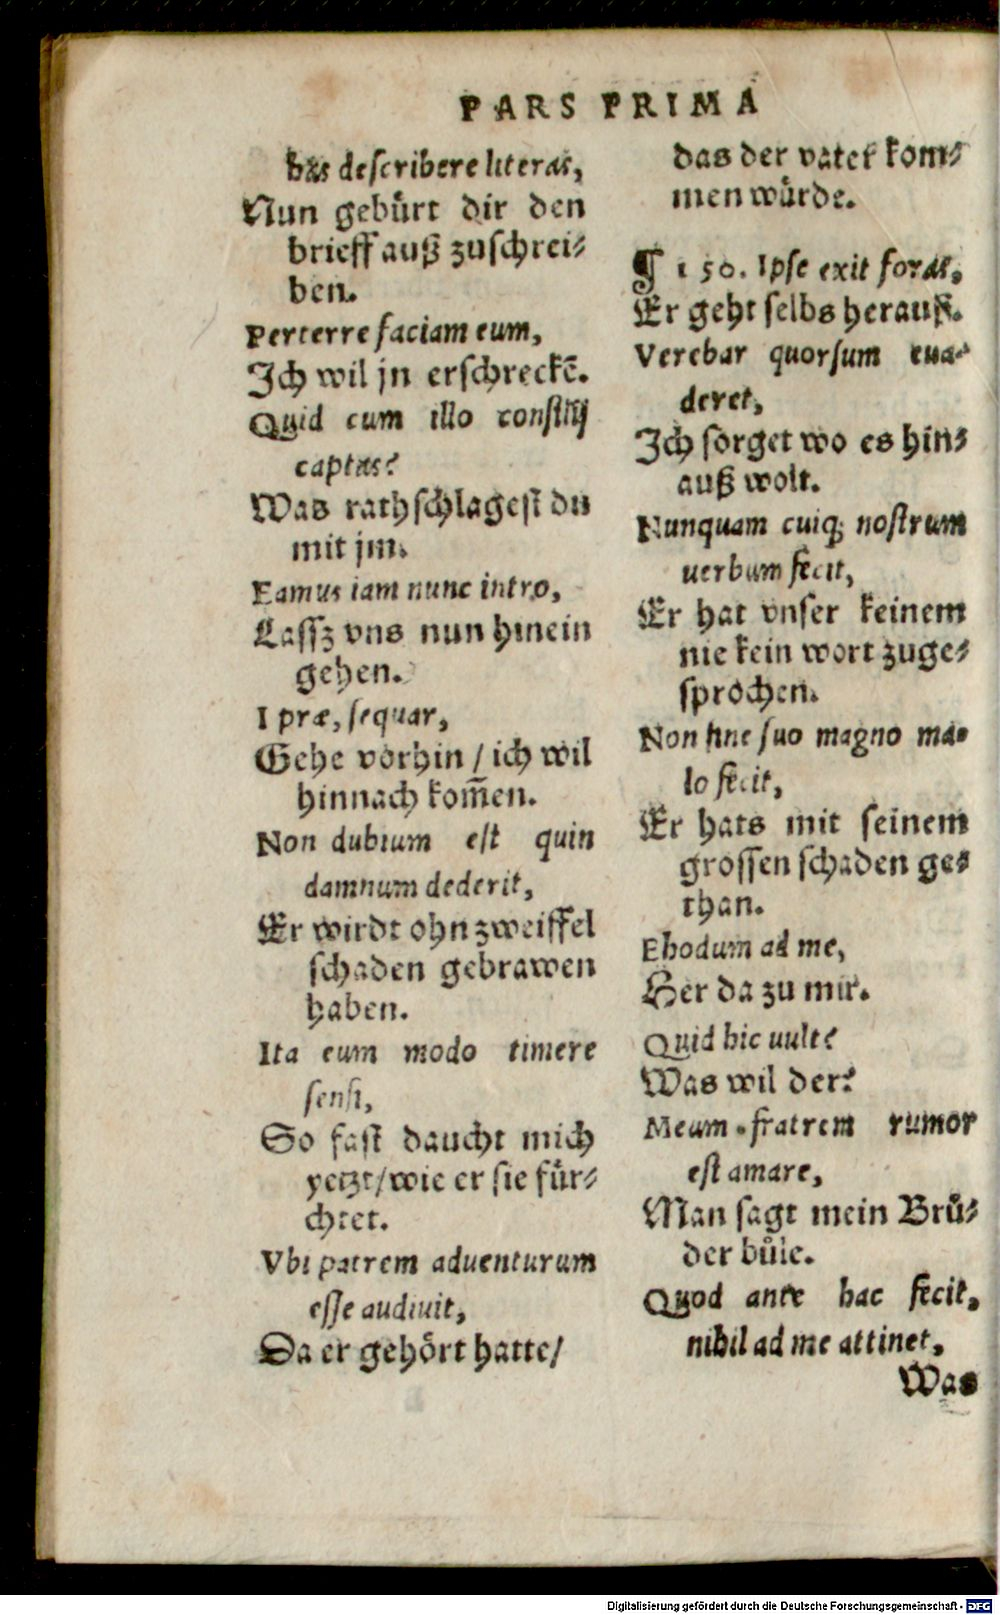 PARS PRIMA
has describere literas,
Nun gebürt dir den
brieff auß zuschrei⸗
ben.
Perterrefaciam eum,
Ich wil jn erschreckē.
Quid cum illo consilij
captas?
Was rathschlagest du
mit jm.
Eamus iam nunc intro,
Lassz vns nun hinein
gehen.
I præ, sequar,
Gehe vorhin / ich wil
hinnach kom̄en.
Non dubium est quin
damnum dederit,
Er wirdt ohn zweiffel
schaden gebrawen
haben.
Ita eum modo timere
sensi,
So fast daucht mich
yetzt/wie er sie für⸗
chtet.
Vbi patrem aduenturum
esse audiuit,
Da er gehört hatte/
das der vater kom⸗
men würde.
¶ 150. Ipse exit foras,
Er geht selbs herauß.
Verebar quorsum eua-
deret,
Ich sorget wo es hin⸗
auß wolt.
Nunquam cuiq; nostrum
uerbum fecit,
Er hat vnser keinem
nie kein wort zuge⸗
sprochen.
Non sine suo magno ma-
lo fecit,
Er hats mit seinem
grossen schaden ge⸗
than.
Ehodum ad me,
Her da zu mir.
Quid hic uult?
Was wil der?
Meum fratrem rumor
est amare,
Man sagt mein Brů⸗
der bůle.
Quod ante hac fecit,
nihil ad me attinet,
Was
Digitalisierung gefördert durch die Deutsche Forschungsgemeinschaft - DFG